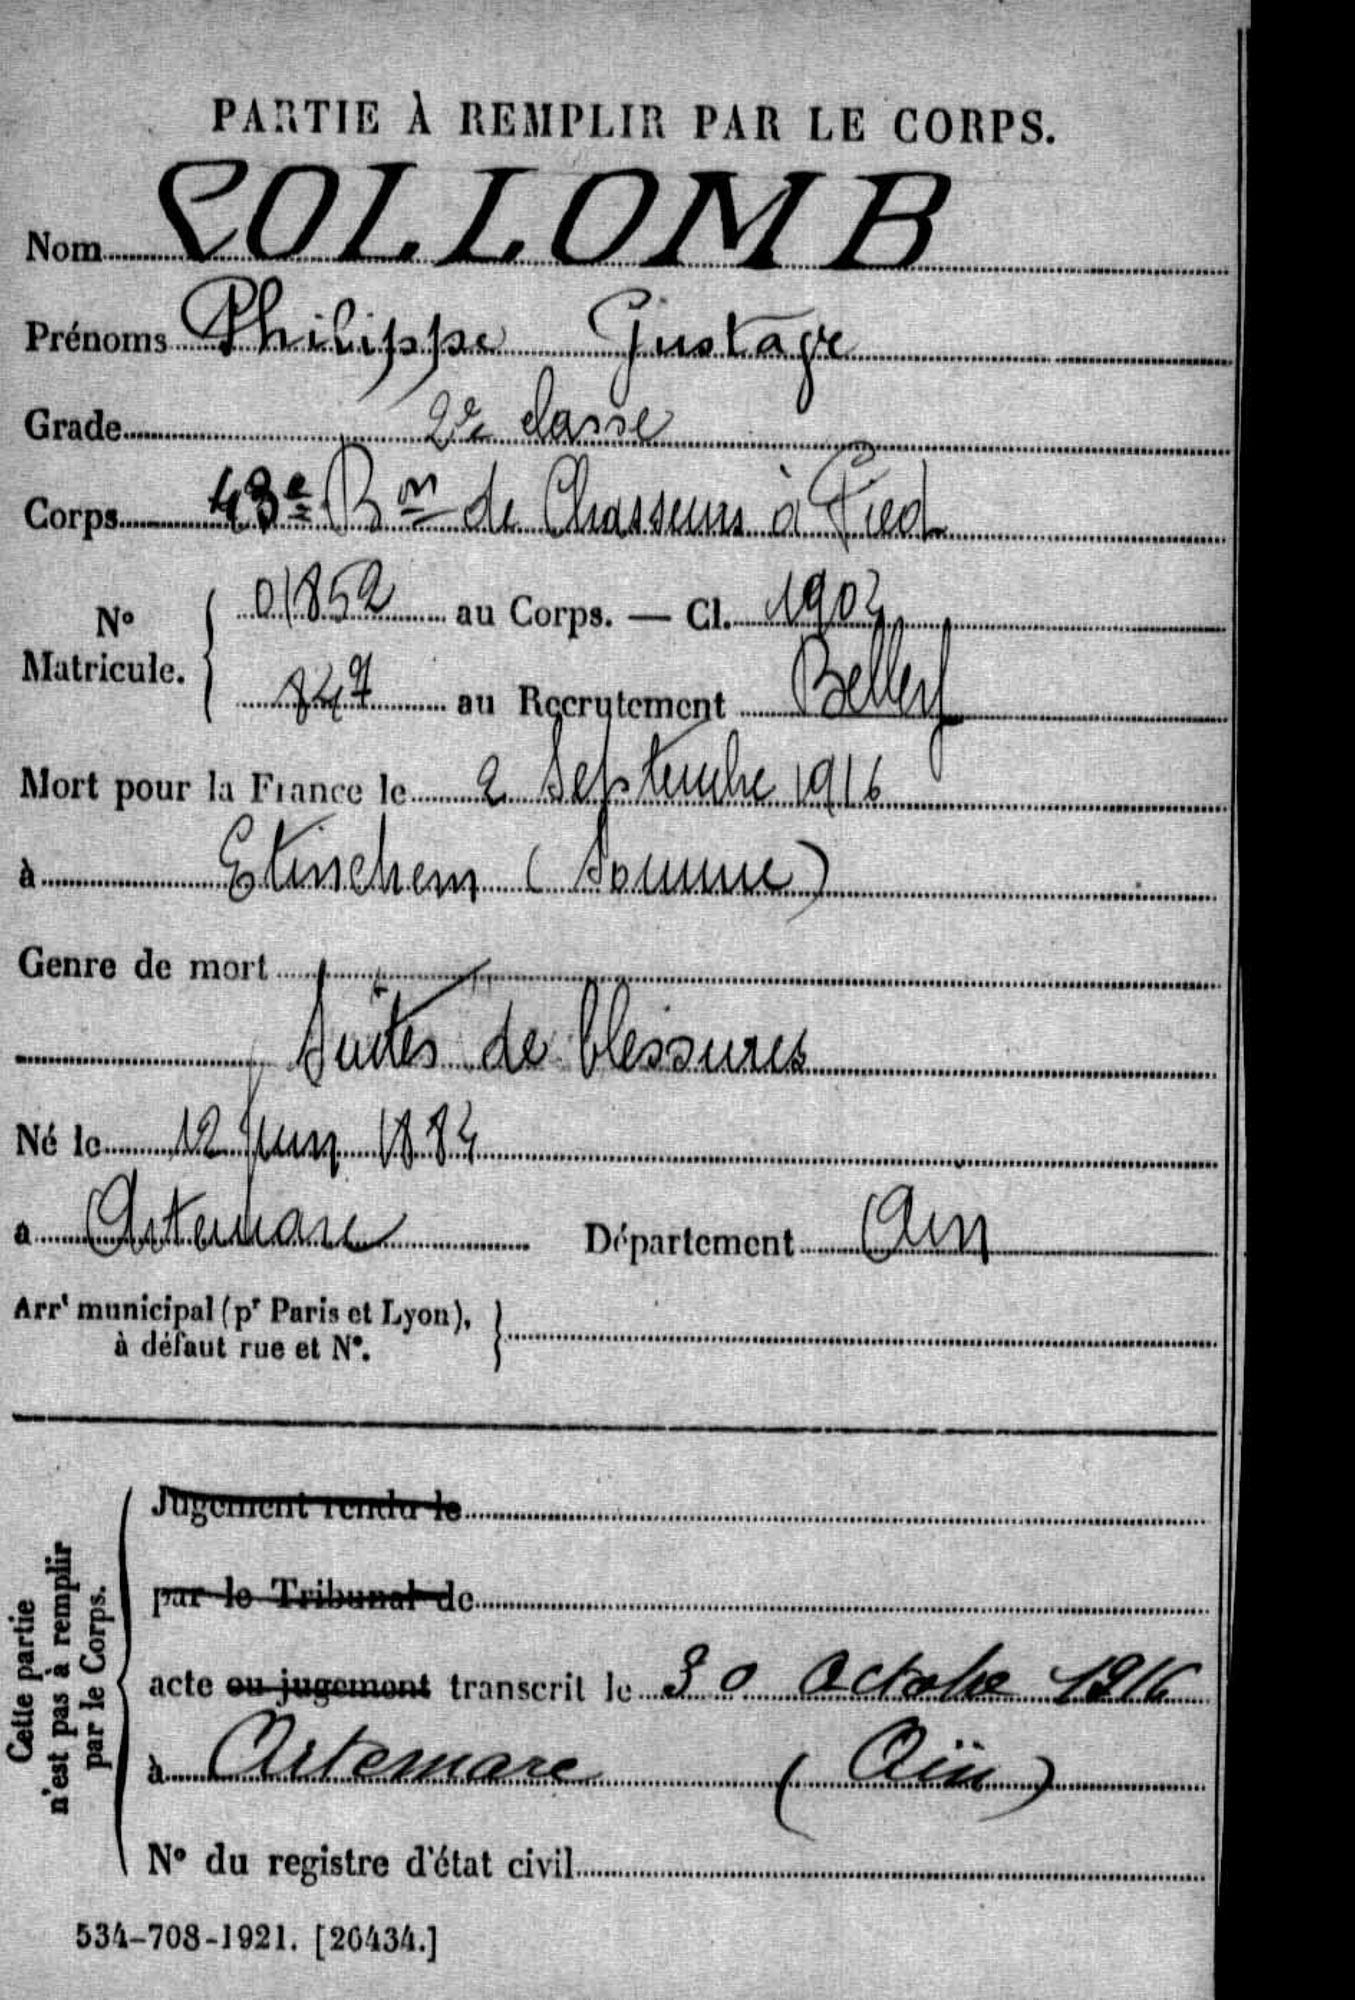 PARTIE À REMPLIR PAR LE CORPS.
Nom COLLOMB
Prénoms Philippe Gustave
Grade 2e classe
Corps 43e Bon de Chasseurs à Pied
No Matricule. 01852 au Corps. — Cl. 1902
847 au Recrutement Belley
Mort pour la France le 2 Septembre 1916
à Etinehem (Somme)
Genre de mort
Suites de blessures
Né le 12 Juin 1882
à Artemare Département Ain
Arrt municipal (pr Paris et Lyon),
à défaut rue et No.
Cette partie
n'est pas à remplir
par le Corps.
Jugement rendu le
par le Tribunal de
acte ou jugement transcrit le 30 Octobre 1916
à Artemare (Ain)
No du registre d'état civil
534-708-1921. [26434.]